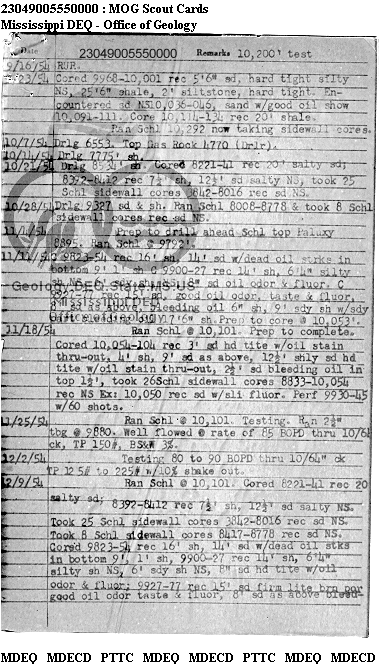 23049005550000 : MOG Scout Cards
Mississippi DEQ - Office of Geology
Date 23049005550000 Remarks 10,200' test
9/16/54 RUR.
9/23/54 Cored 9968-10,001 rec 5'6" sd, hard tight silty
NS, 25'6" shale, 2' siltstone, hard tight. En-
countered sd NS10,036-046, sand w/good oil show
10,091-111. Core 10,114-134 rec 20' shale.
Ran Schl 10,292 now taking sidewall cores.
10/7/54 Drlg 6553. Top Gas Rock 4770 (Drlr).
10/14/54 Drlg 7775' sh.
10/21/54 Drlg 8534' sh. Cored 8221-41 rec 20' salty sd;
8392-8412 rec 7½' sh, 12½' sd salty NS, took 25
Schl sidewall cores 8842-8016 rec sd NS.
10/28/54 Drlg 9327 sd & sh. Ran Schl 8008-8778 & took 8 Schl
sidewall cores rec sd NS.
11/4/54 Prep to drill ahead Schl top Paluxy
8895. Ran Schl @ 9792'.
11/11/54 C 9823-54 rec 16' sh, 14' sd w/dead oil strks in
bottom 9' 1' sh C 9900-27 rec 14' sh, 6'4" silty
sd oil odor & fluor. C
rec 15' sd, good oil odor, taste & fluor,
sd as above, bleeding oil 6" sh, 9' sdy sh w/sdy
Prep to core @ 10,053'.
Geology, DEQ, State.MS.US
Mississippi DEQ
Office of Geology
11/18/54 Ran Schl @ 10,101. Prep to complete.
Cored 10,054-104 rec 3' sd hd tite w/oil stain
thru-out, 4' sh, 9' sd as above, 12½' shly sd hd
tite w/oil stain thru-out, 2½' sd bleeding oil in
top 1½', took 26Schl sidewall cores 8833-10,054
rec NS Ex: 10,050 rec sd w/sli fluor. Perf 9930-45
w/60 shots.
11/25/54 Ran Schl @ 10,101. Testing. Ran 2½"
tbg @ 9880. Well flowed @ rate of 85 BOPD thru 10/64
ck, TP 150#, BS&W 3%.
12/2/54 Testing 80 to 90 BOPD thru 10/64" ck
TP 125# to 225# w/10% shake out.
12/9/54 Ran Schl @ 10,101. Cored 8221-41 rec 20
salty sd; 8392-8412 rec 7½' sh, 12½' sd salty NS.
Took 25 Schl sidewall cores 3842-8016 rec sd NS.
Took 8 Schl sidewall cores 8417-8778 rec sd NS.
Cored 9823-54 rec 16' sh, 14' sd w/dead oil stks
in bottom 9', 1' sh, 9900-27 rec 14' sh, 6'4"
silty sh NS, 6' sdy sh NS, 8" sd hd tite w/oil
odor & fluor; 9927-77 rec 15' sd firm lite brn por
good oil odor taste & fluor, 8' sd as above bleed-
MDEQ MDECD PTTC MDEQ MDECD PTTC MDEQ MDECD